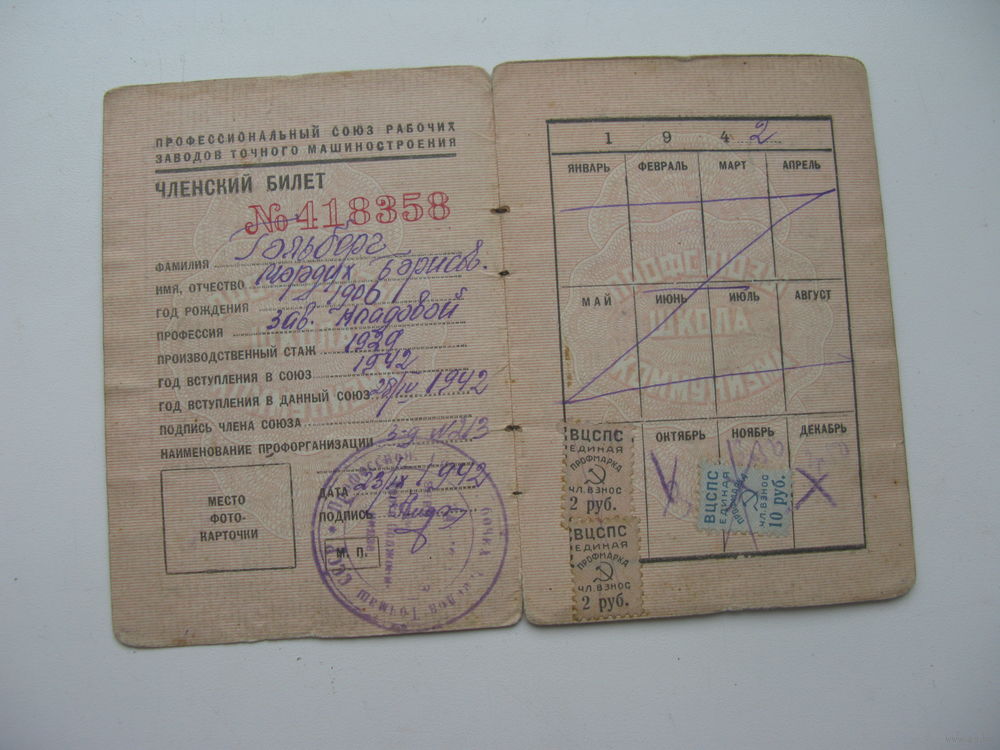 ПРОФЕССИОНАЛЬНЫЙ СОЮЗ РАБОЧИХ
ЗАВОДОВ ТОЧНОГО МАШИНОСТРОЕНИЯ
ЧЛЕНСКИЙ БИЛЕТ
№ 418358
ФАМИЛИЯ Гальберг
ИМЯ, ОТЧЕСТВО Мордух Борисов.
ГОД РОЖДЕНИЯ 1906
ПРОФЕССИЯ Зав. Кладовой
ПРОИЗВОДСТВЕННЫЙ СТАЖ 1929
ГОД ВСТУПЛЕНИЯ В СОЮЗ 1942
ГОД ВСТУПЛЕНИЯ В ДАННЫЙ СОЮЗ 1942
ПОДПИСЬ ЧЛЕНА СОЮЗА
НАИМЕНОВАНИЕ ПРОФОРГАНИЗАЦИИ
МЕСТО
ФОТО-
КАРТОЧКИ
ДАТА 23/IX 1942
ПОДПИСЬ
М. П.
1 9 4 2
ЯНВАРЬ ФЕВРАЛЬ МАРТ АПРЕЛЬ
МАЙ ИЮНЬ ИЮЛЬ АВГУСТ
ОКТЯБРЬ НОЯБРЬ ДЕКАБРЬ
ВЦСПС
ЕДИНАЯ
ПРОФМАРКА
ЧЛ. ВЗНОС
2 руб.
ВЦСПС
ЕДИНАЯ
ПРОФМАРКА
ЧЛ. ВЗНОС
2 руб.
ВЦСПС
ЕДИНАЯ
ПРОФМАРКА
ЧЛ. ВЗНОС
10 руб.